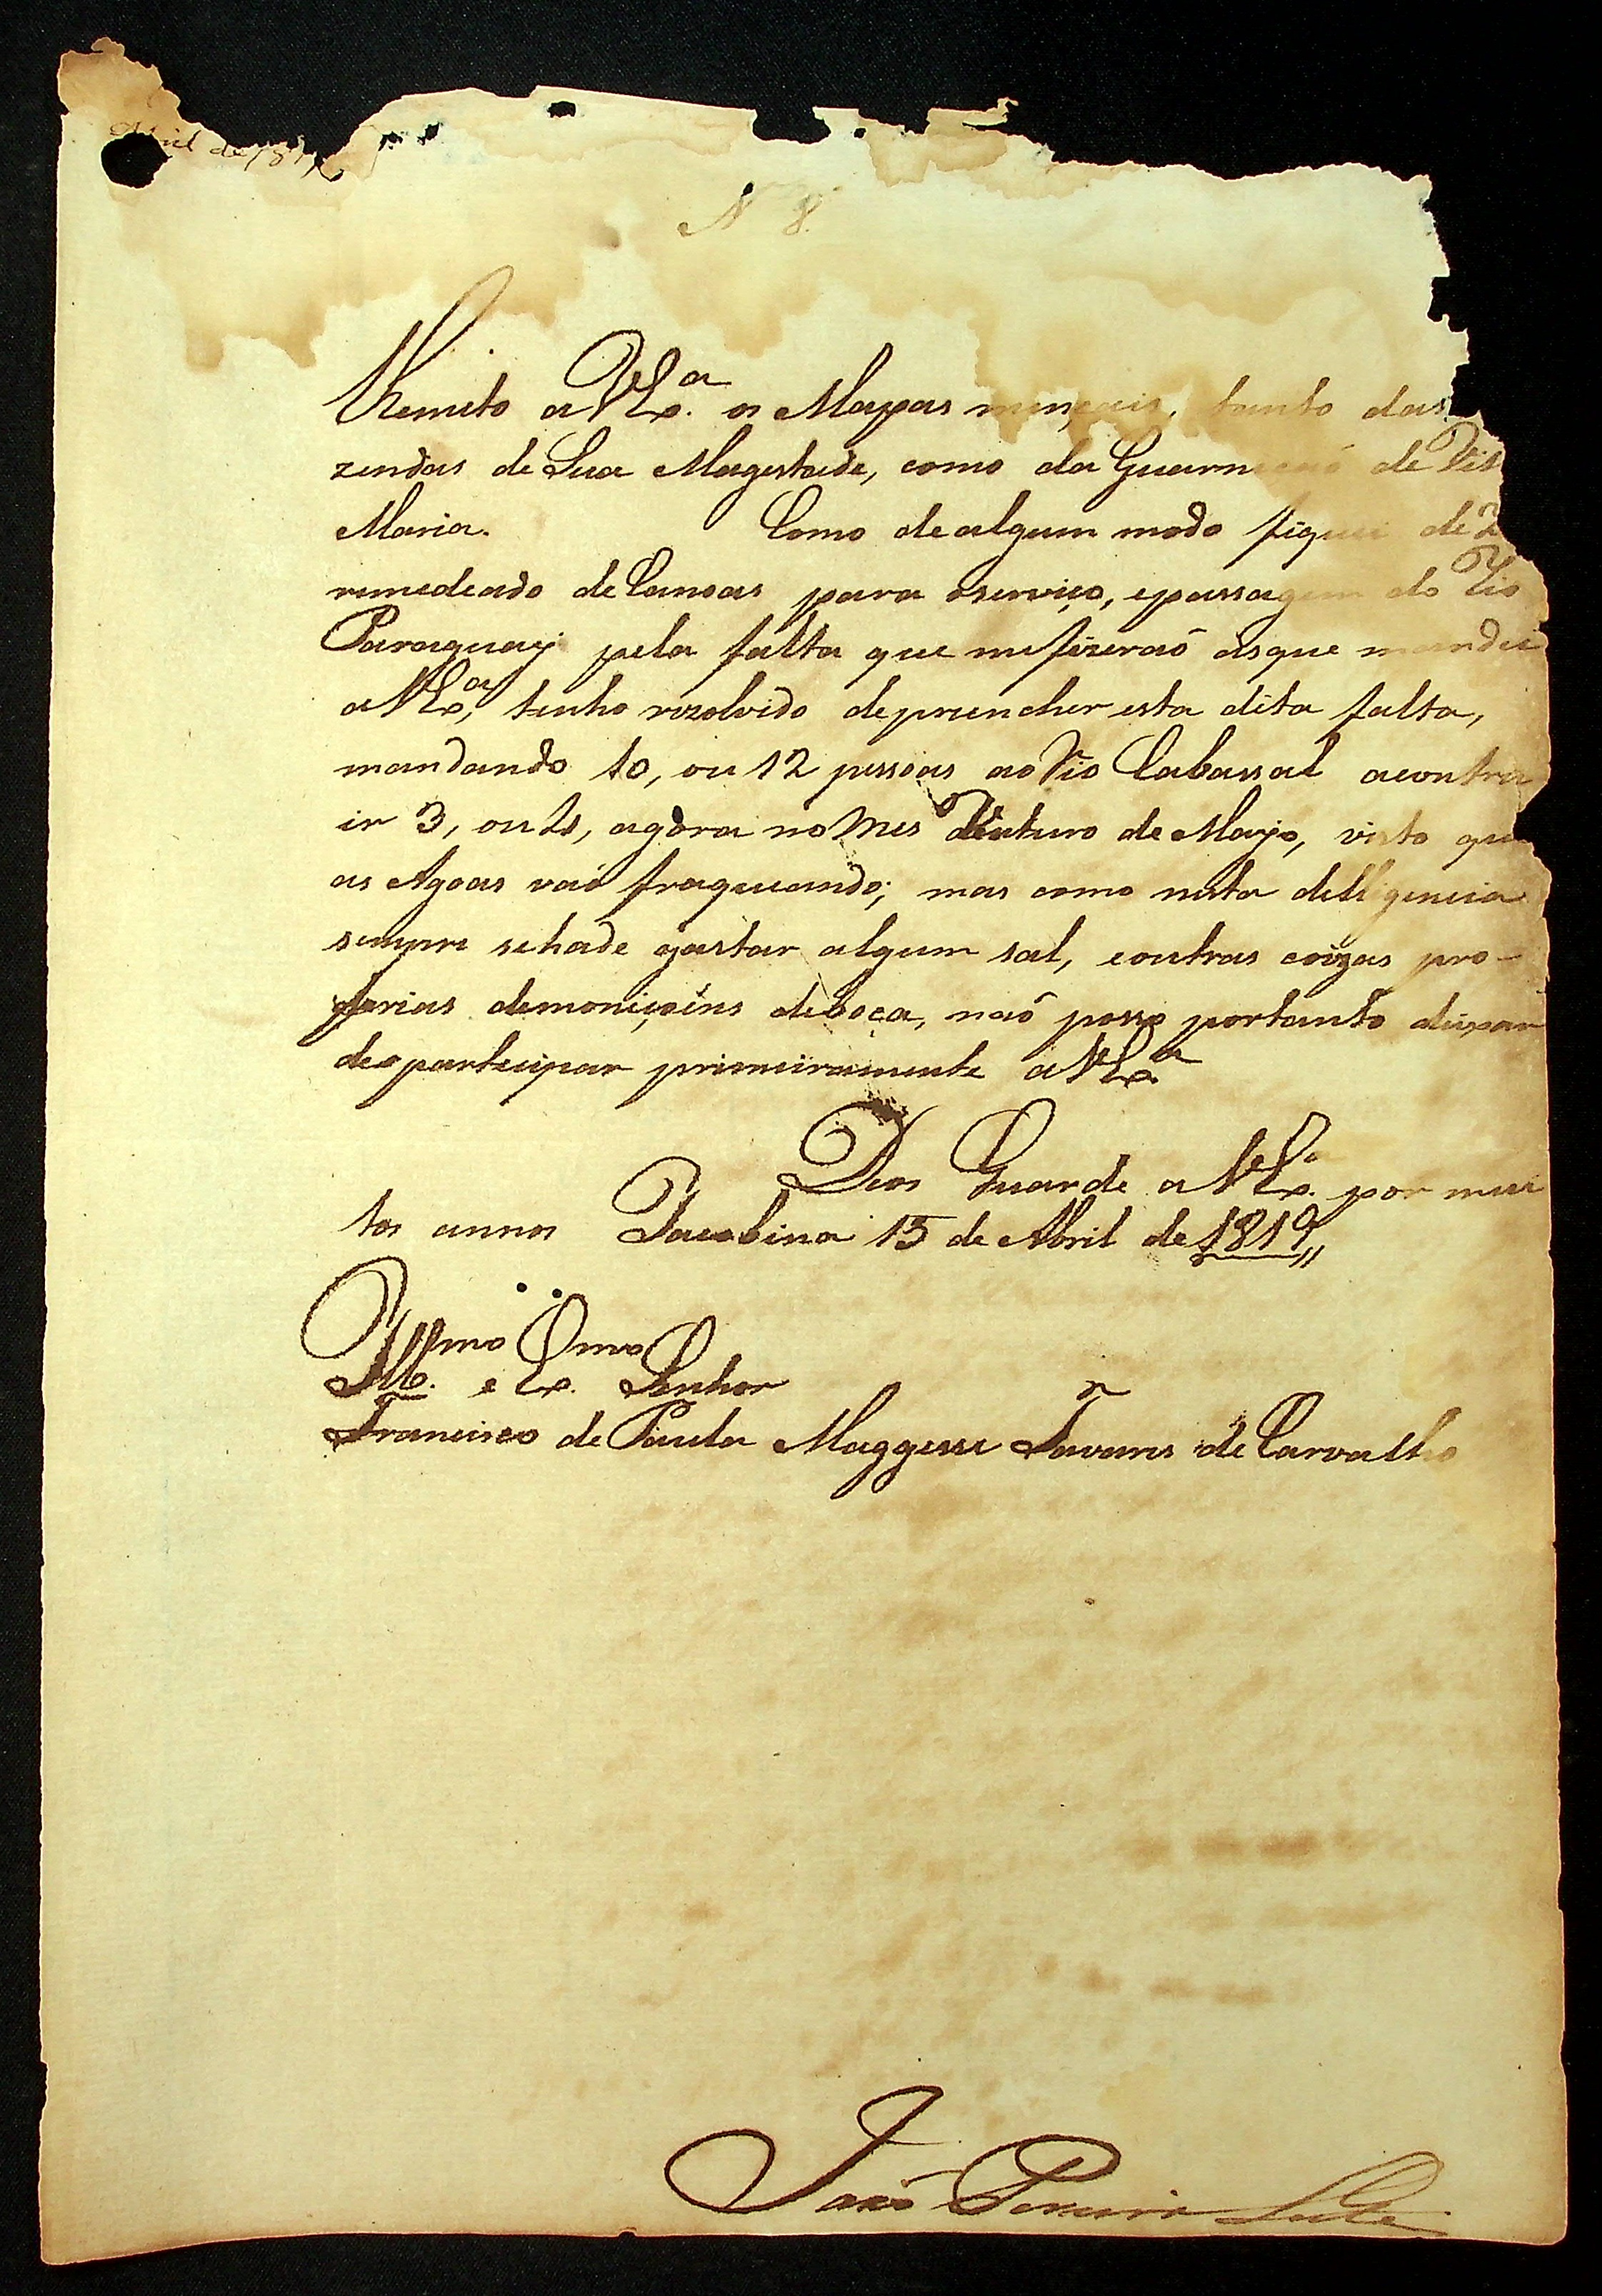 Abril de 181
N 8.
Remeto a V Ex.ª os Mapas mençais, tanto das
zendas de Sua Magestade, como da Guarnicaõ de Vil
Maria. Como de algum modo fiquei de
remedeado de Canoas para oserviço, epassagem do Rio
Paraguay pela falta que mefizeraõ asque mandei
a V Ex.ª, tenho rezolvido depreencher esta dita falta,
mandando 10, ou 12 pessoas ao Rio Cabassal acontru
ir 3, ou 4, agora no Mes futuro de Mayo, visto que
as Agoas vaõ fraqueando; mas como nesta delligencia
sempre sehade gastar algum sal, eoutras coizas pro-
prias demoniçoéns deboca, naõ posso portanto deixar
deoparteipar primeiramente a V Ex.ª
Deos Guarde a V Ex.ª por mui
tos annos Jacobina 15 de Abril de 1819,,
Ill.mo e Ex.mo Senhor
Francisco de Paula Maggessi Tavares de Carvalho
Joaõ Pereira Leite